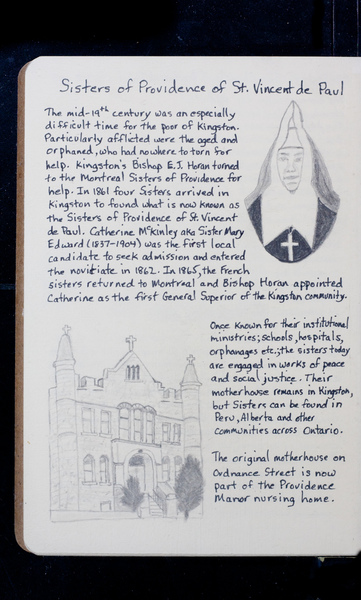 Sisters of Providence of St. Vincent de Paul
The mid-19th century was an especially
difficult time for the poor of Kingston.
Particularly afflicted were the aged and
orphaned, who had nowhere to torn for
help. Kingston's Bishop E.J. Horan turned
to the Montreal Sisters of Providence for
help. In 1861 four Sisters arrived in
Kingston to found what is now known as
the Sisters of Providence of St. Vincent
de Paul. Catherine McKinley aka Sister Mary
Edward (1837-1904) was the first local
candidate to seek admission and entered
the novitiate in 1862. In 1865, the French
sisters returned to Montreal and Bishop Horan appointed
Catherine as the first General Superior of the Kingston community.
Once known for their institutional
ministries; schools, hospitals,
orphanages etc.; the sisters today
are engaged in works of peace
and social justice. Their
motherhouse remains in Kingston,
but Sisters can be found in
Peru, Alberta and other
communities across Ontario.
The original motherhouse on
Ordnance Street is now
part of the Providence
Manor nursing home.